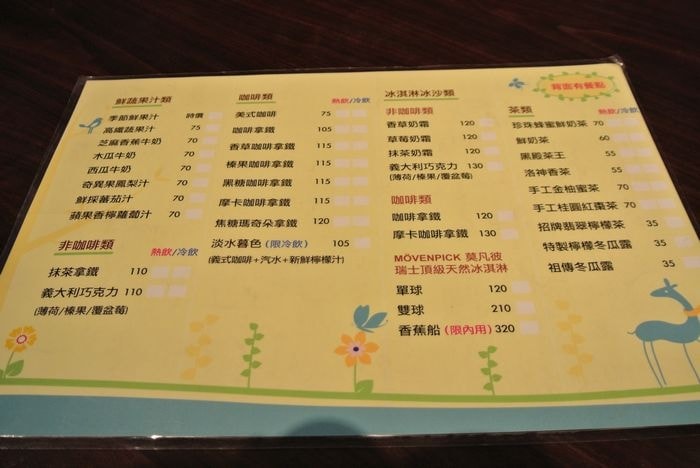 鮮蔬果汁類
季節鮮果汁 時價
高纖蔬果汁 75
芝麻香蕉牛奶 70
木瓜牛奶 70
西瓜牛奶 70
奇異果鳳梨汁 70
鮮採蕃茄汁 70
蘋果香檸蘿蔔汁 70
非咖啡類 熱飲/冷飲
抹茶拿鐵 110
義大利巧克力 110
(薄荷/榛果/覆盆莓)
咖啡類 熱飲/冷飲
美式咖啡 75
咖啡拿鐵 105
香草咖啡拿鐵 115
榛果咖啡拿鐵 115
黑糖咖啡拿鐵 115
摩卡咖啡拿鐵 115
焦糖瑪奇朵拿鐵 120
淡水暮色 (限冷飲) 105
(義式咖啡+汽水+新鮮檸檬汁)
冰淇淋冰沙類
非咖啡類
香草奶霜 120
草莓奶霜 120
抹茶奶霜 120
義大利巧克力 130
(薄荷/榛果/覆盆莓)
咖啡類
咖啡拿鐵 120
摩卡咖啡拿鐵 130
MÖVENPICK 莫凡彼
瑞士頂級天然冰淇淋
單球 120
雙球 210
香蕉船 (限內用) 320
背面有餐點
茶類 熱飲/冷飲
珍珠蜂蜜鮮奶茶 70
鮮奶茶 60
黑殿茶王 55
洛神香茶 55
手工金柚蜜茶 70
手工桂圓紅棗茶 70
招牌翡翠檸檬茶 35
特製檸檬冬瓜露 55
祖傳冬瓜露 35